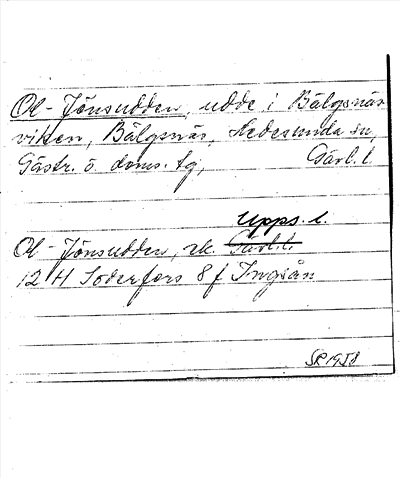 Ol-Jönsudden, udde i Bälgsnäs
viken, Bälgsnäs, Hedesunda sn,
Gästr. ö. doms. tg, Gävl. l.
Upps. l.
Ol-Jönsudden, rk. Gävl. l.
12 H Söderfors 8 f Ingsån
SR 1958